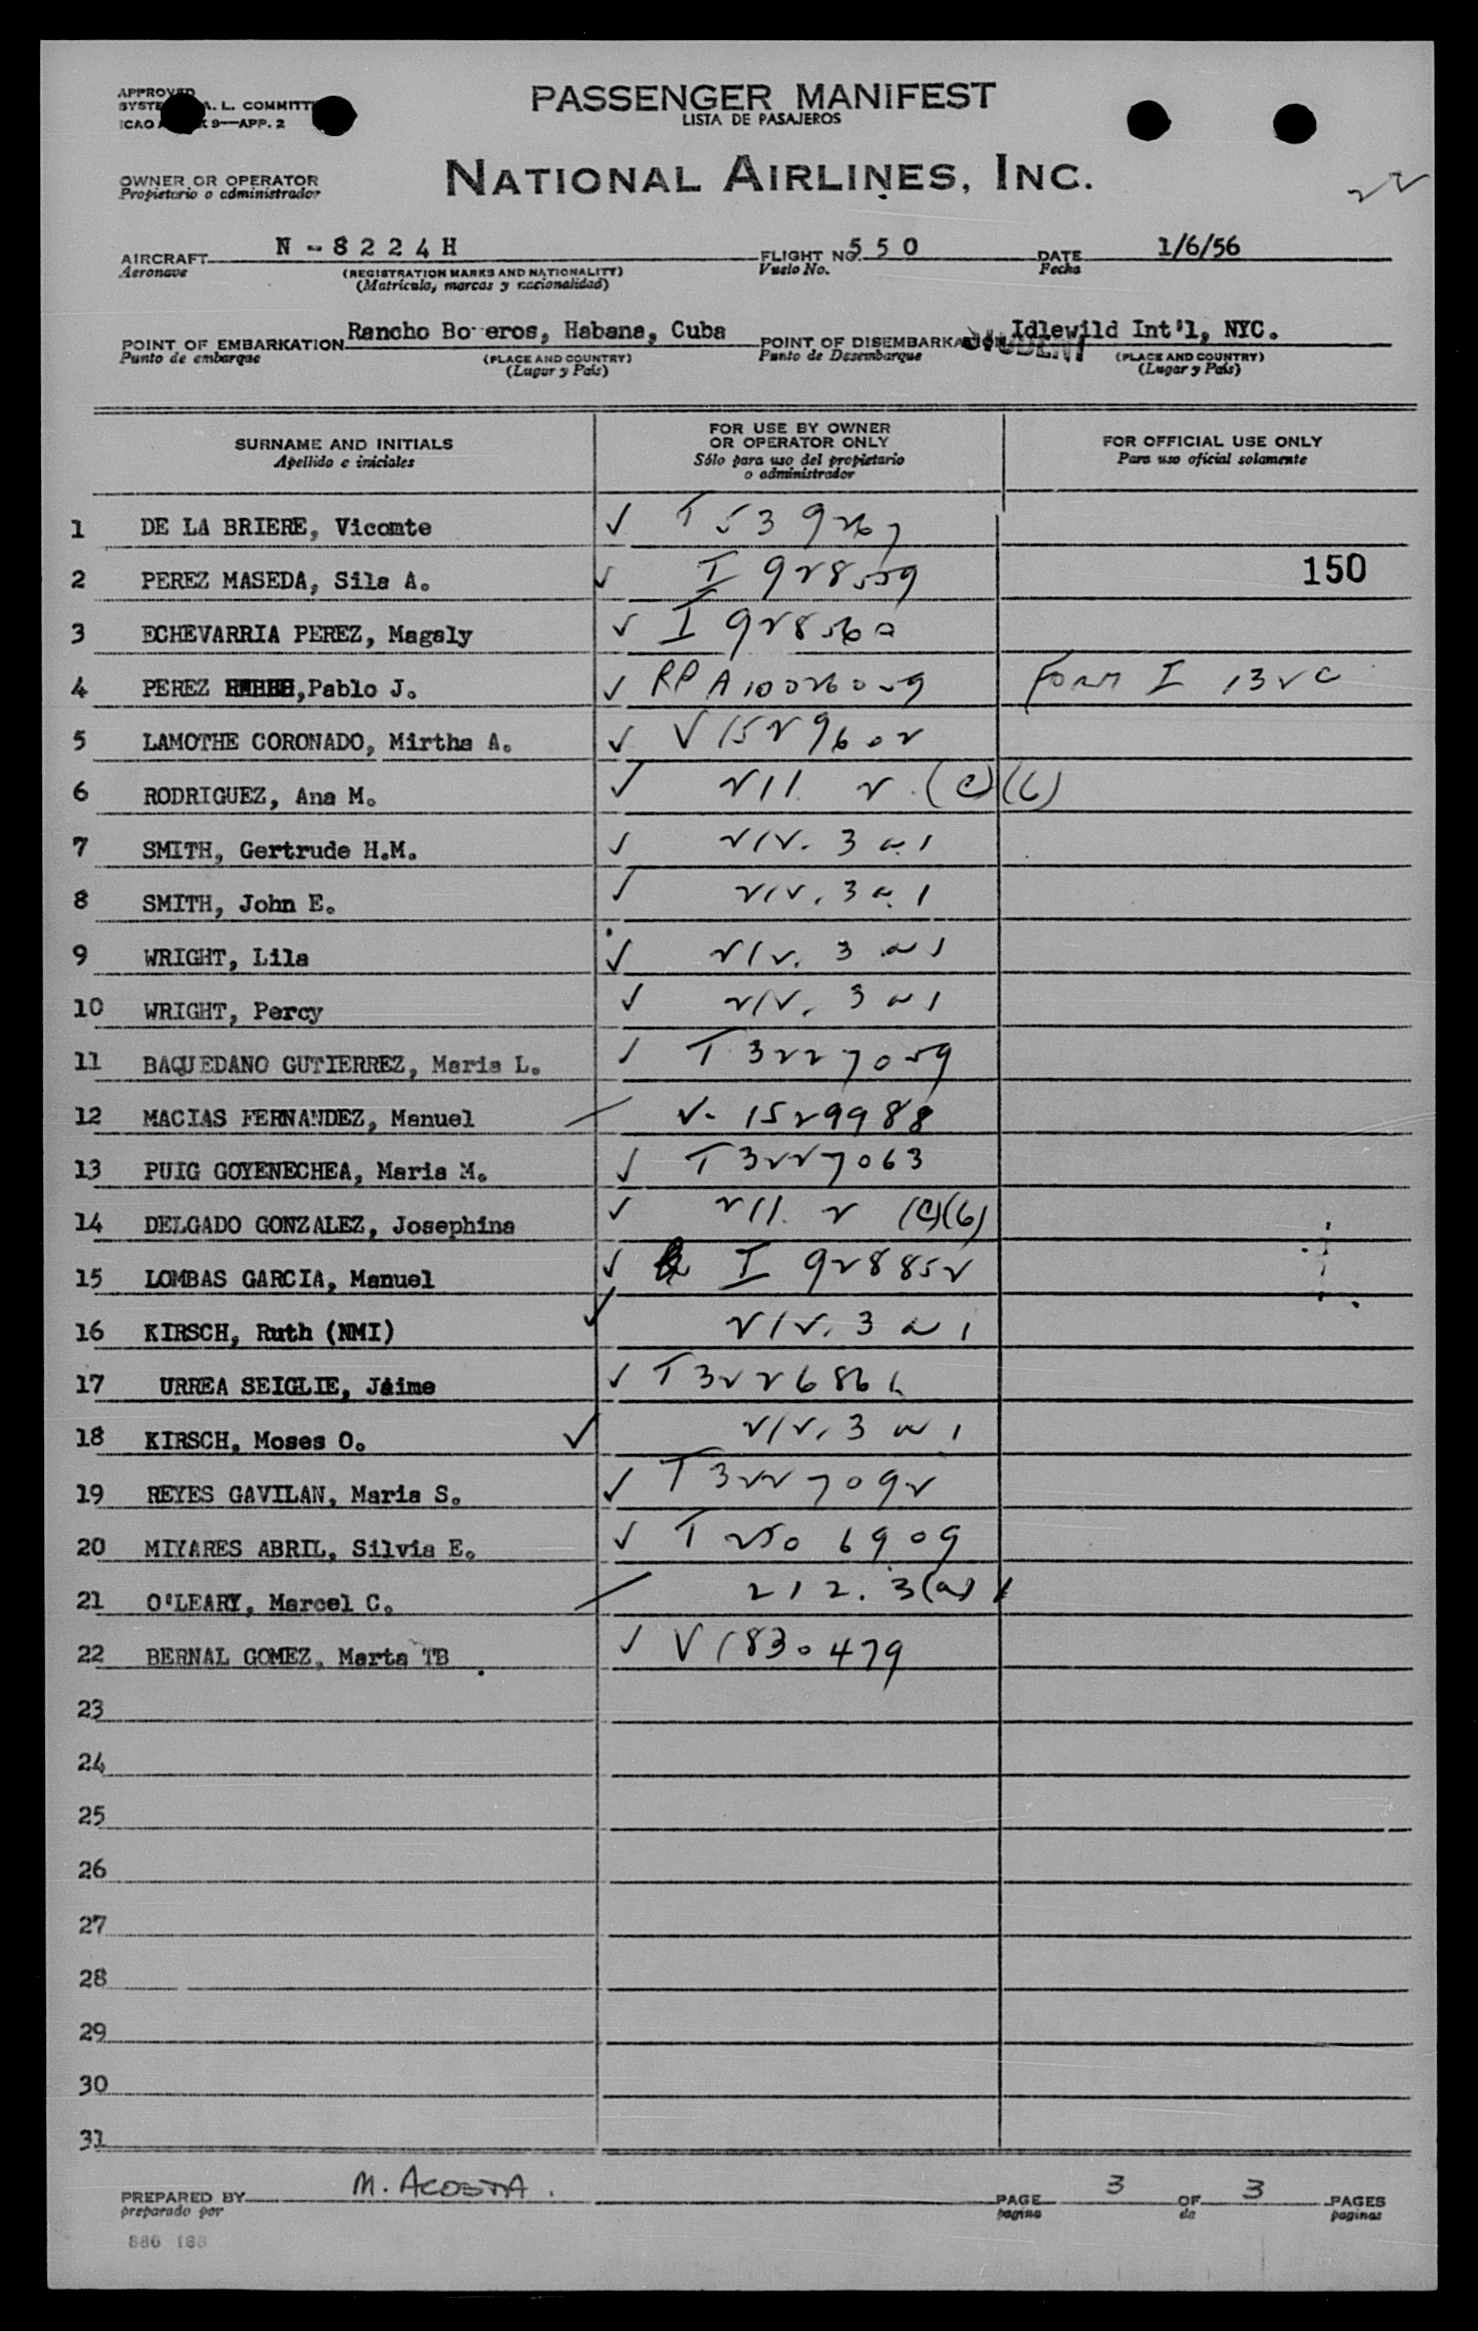 APPROVED
SYSTE A. L. COMMITT
ICAO A X 9—APP. 2
PASSENGER MANIFEST
LISTA DE PASAJEROS
OWNER OR OPERATOR
Propietario o administrador
NATIONAL AIRLINES, INC.
22
AIRCRAFT N-8224H FLIGHT NO. 550 DATE 1/6/56
Aeronave (REGISTRATION MARKS AND NATIONALITY) Vuelo No. Fecha
(Matricula, marcas y nacionalidad)
POINT OF EMBARKATION Rancho Bo eros, Habana, Cuba POINT OF DISEMBARKATION Idlewild Int'l, NYC.
STUDENT
Punto de embarque (PLACE AND COUNTRY) Punto de Desembarque (PLACE AND COUNTRY)
(Lugar y País) (Lugar y País)
SURNAME AND INITIALS FOR USE BY OWNER OR OPERATOR ONLY FOR OFFICIAL USE ONLY
Apellido e iniciales Sólo para uso del propietario o administrador Para uso oficial solamente
1 DE LA BRIERE, Vicomte ✓ T 539267
2 PEREZ MASEDA, Sila A. ✓ I 928559 150
3 ECHEVARRIA PEREZ, Magaly ✓ I 928560
4 PEREZ ,Pablo J. ✓ RP A10026059 Form I 132C
5 LAMOTHE CORONADO, Mirtha A. ✓ V1529602
6 RODRIGUEZ, Ana M. ✓ 211. 2 (c)(6)
7 SMITH, Gertrude H.M. ✓ 212. 3 a 1
8 SMITH, John E. ✓ 212. 3 a 1
9 WRIGHT, Lila ✓ 212. 3 a 1
10 WRIGHT, Percy ✓ 212. 3 a 1
11 BAQUEDANO GUTIERREZ, Maria L. ✓ T 3227059
12 MACIAS FERNANDEZ, Manuel V- 1529988
13 PUIG GOYENECHEA, Maria M. ✓ T 3227063
14 DELGADO GONZALEZ, Josephina ✓ 211. 2 (c)(6)
15 LOMBAS GARCIA, Manuel ✓ I 928852
16 KIRSCH, Ruth (NMI) ✓ 212. 3 a 1
17 URREA SEIGLIE, Jaime ✓ T3226866
18 KIRSCH, Moses O. ✓ 212. 3 a 1
19 REYES GAVILAN, Maria S. ✓ T 3227092
20 MIYARES ABRIL, Silvia E. ✓ T 2506909
21 O'LEARY, Marcel C. 212. 3(a) 1
22 BERNAL GOMEZ, Marta TB ✓ V1830479
23
24
25
26
27
28
29
30
31
PREPARED BY M. ACOSTA. PAGE 3 OF 3 PAGES
preparado por pagina de paginas